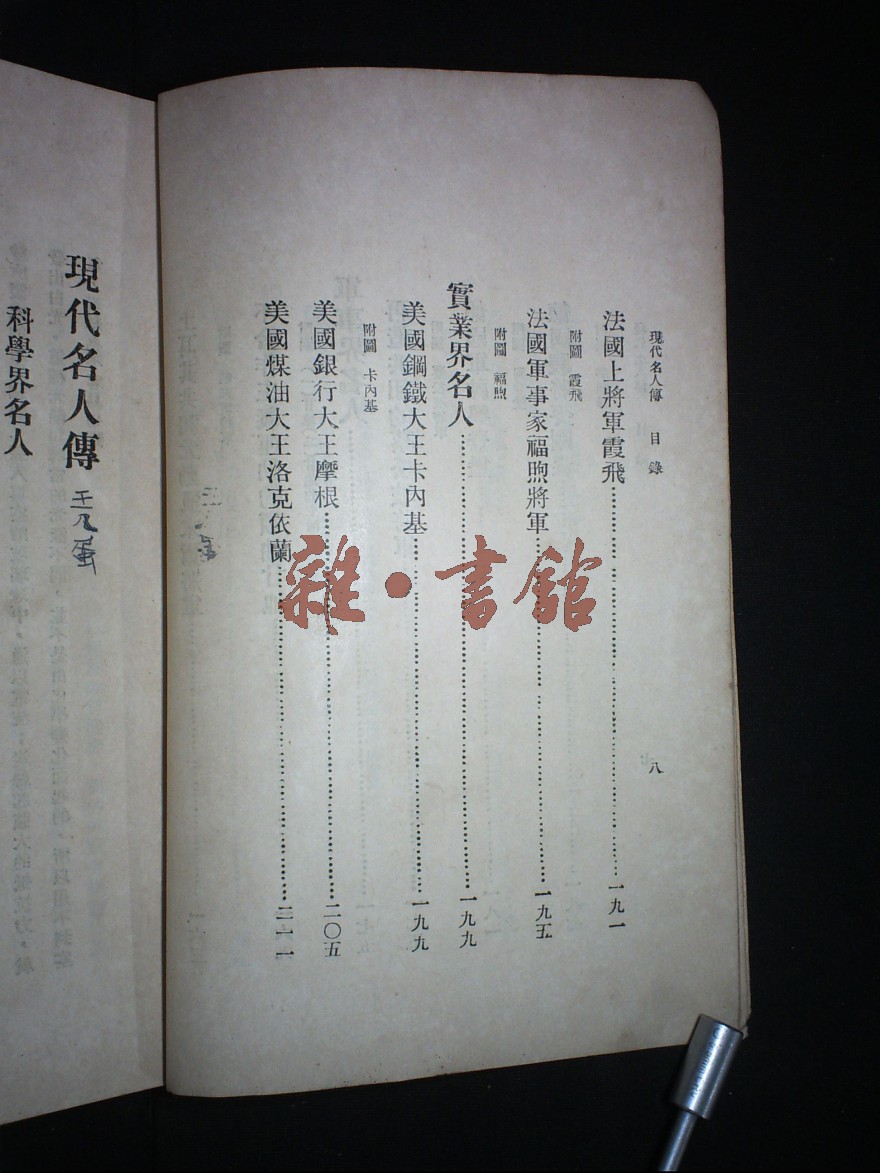 現代名人傳 目錄
八
法國上將軍霞飛 一九一
附圖 霞飛
法國軍事家福煦將軍 一九五
附圖 福煦
實業界名人 一九九
美國鋼鐵大王卡內基 一九九
附圖 卡內基
美國銀行大王摩根 二〇五
美國煤油大王洛克依蘭 二一一
雜·書館
現代名人傳
王八蛋
科學界名人